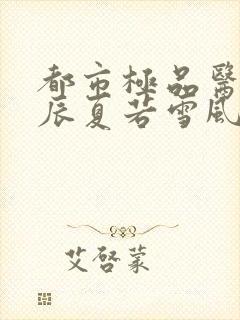 都市極品醫
辰夏若雪風
艾啓蒙